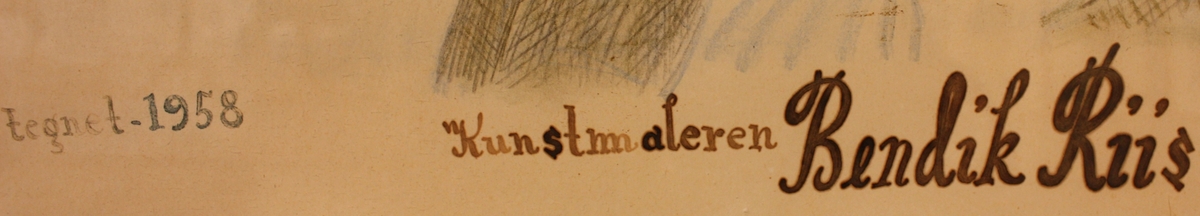 tegnet-1958
"Kunstmaleren Bendik Riis